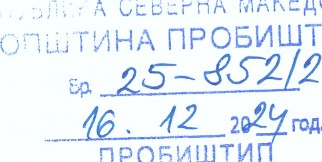 РЕПУБЛИКА СЕВЕРНА МАКЕДО
ОПШТИНА ПРОБИШТ
Бр. 25-852/2
16. 12 2024 год.
ПРОБИШТИП